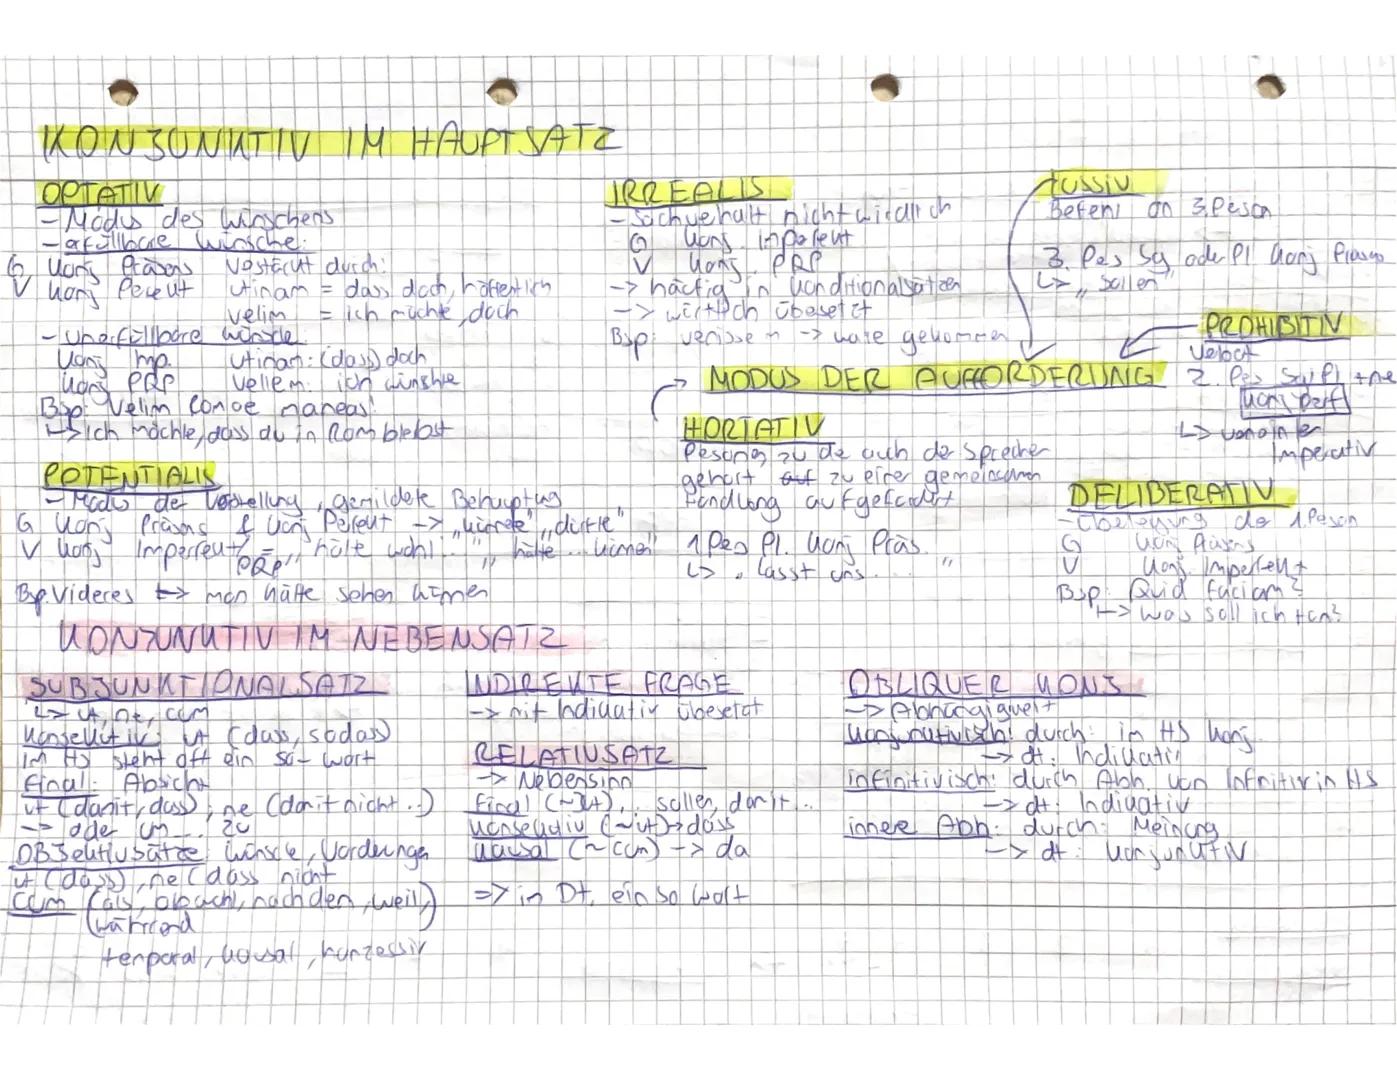 KONJUNKTIV IM HAUPTSATZ
OPTATIV
- Modus des Wünschens
- erfüllbare Wünsche:
G Konj Präsens verstärkt durch:
V Konj Perfekt utinam = dass doch, hoffentlich
velim = ich möchte, doch
- unerfüllbare Wünsche
Konj Imp. utinam: (dass) doch
Konj PQP vellem: ich wünschte
Bsp: Velim Romae maneas!
↳ Ich möchte, dass du in Rom bleibst
POTENTIALIS
- Modus der Vorstellung, gemilderte Behauptung
G Konj Präsens & Konj Perfekt -> "könnte", "dürfte"
V Konj Imperfekt/PQP = "hätte wohl...", "hätte... können"
Bsp. Videres -> man hätte sehen können
IRREALIS
- Sachverhalt nicht wirklich
G Konj. Imperfekt
V Konj. PQP
-> häufig in Konditionalsätzen
-> wörtlich übersetzt
Bsp: venissem -> wäre gekommen
JUSSIV
Befehl an 3. Person
3. Pers Sg oder Pl Konj Präsens
↳ "sollen"
PROHIBITIV
Verbot
2. Pers Sg/Pl + ne
Konj Perf
↳ verneinter
Imperativ
MODUS DER AUFFORDERUNG
HORTATIV
Personen, zu der auch der Sprecher
gehört zu einer gemeinsamen
Handlung aufgefordert
1 Pers Pl. Konj Präs.
↳ "Lasst uns...."
DELIBERATIV
- Überlegung der 1. Person
G Konj Präsens
V Konj. Imperfekt
Bsp: Quid faciam?
↳ Was soll ich tun?
KONJUNKTIV IM NEBENSATZ
SUBJUNKTIONALSATZ
↳ ut, ne, cum
Konsekutiv: ut (dass, sodass)
im HS steht oft ein so-Wort
Final: Absicht
ut (damit, dass), ne (damit nicht..)
-> oder um... zu
OBJektivsätze: Wünsche, Forderungen
ut (dass), ne (dass nicht
cum (als, obwohl, nachdem, weil,)
(während
temporal, kausal, konzessiv
INDIREKTE FRAGE
-> mit Indikativ übersetzt
RELATIVSATZ
-> Nebensinn
Final (~ut), .. sollen, damit...
Konsekutiv (~ut) -> dass
Kausal (~cum) -> da
=> in Dt. ein so Wort
OBLIQUER KONJ
-> Abhängigkeit
Konjunktivisch: durch: im HS Konj.
-> dt: Indikativ
infinitivisch: durch Abh. von Infinitiv in HS
-> dt: Indikativ
innere Abh: durch: Meinung
-> dt: Konjunktiv